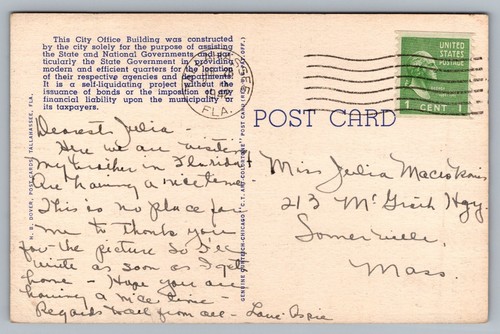 This City Office Building was constructed
by the city solely for the purpose of assisting
the State and National Governments and par-
ticularly the State Government in providing
modern and efficient quarters for the location
of their respective agencies and departments.
It is a self-liquidating project without the
issuance of bonds or the imposition of any
financial liability upon the municipality or
its taxpayers.
Dearest Julia -
Here we are visiting
my brother in Florida
Are having a nice time
This is no place for
me to thank you
for the picture So I'll
write as soon as I get
home - Hope you are
having a nice time -
Regards to all from all -
Love
H. & DOVER, POST CARDS, TALLAHASSEE, FLA.
GENUINE CURTEICH-CHICAGO "C.T. ART-COLORTONE" POST CARD (REG. U.S. PAT. OFF.)
FLA.
UNITED
STATES
POSTAGE
1 CENT 1
POST CARD
Miss Julia
213 McGrath Hgy.
Somerville,
Mass.